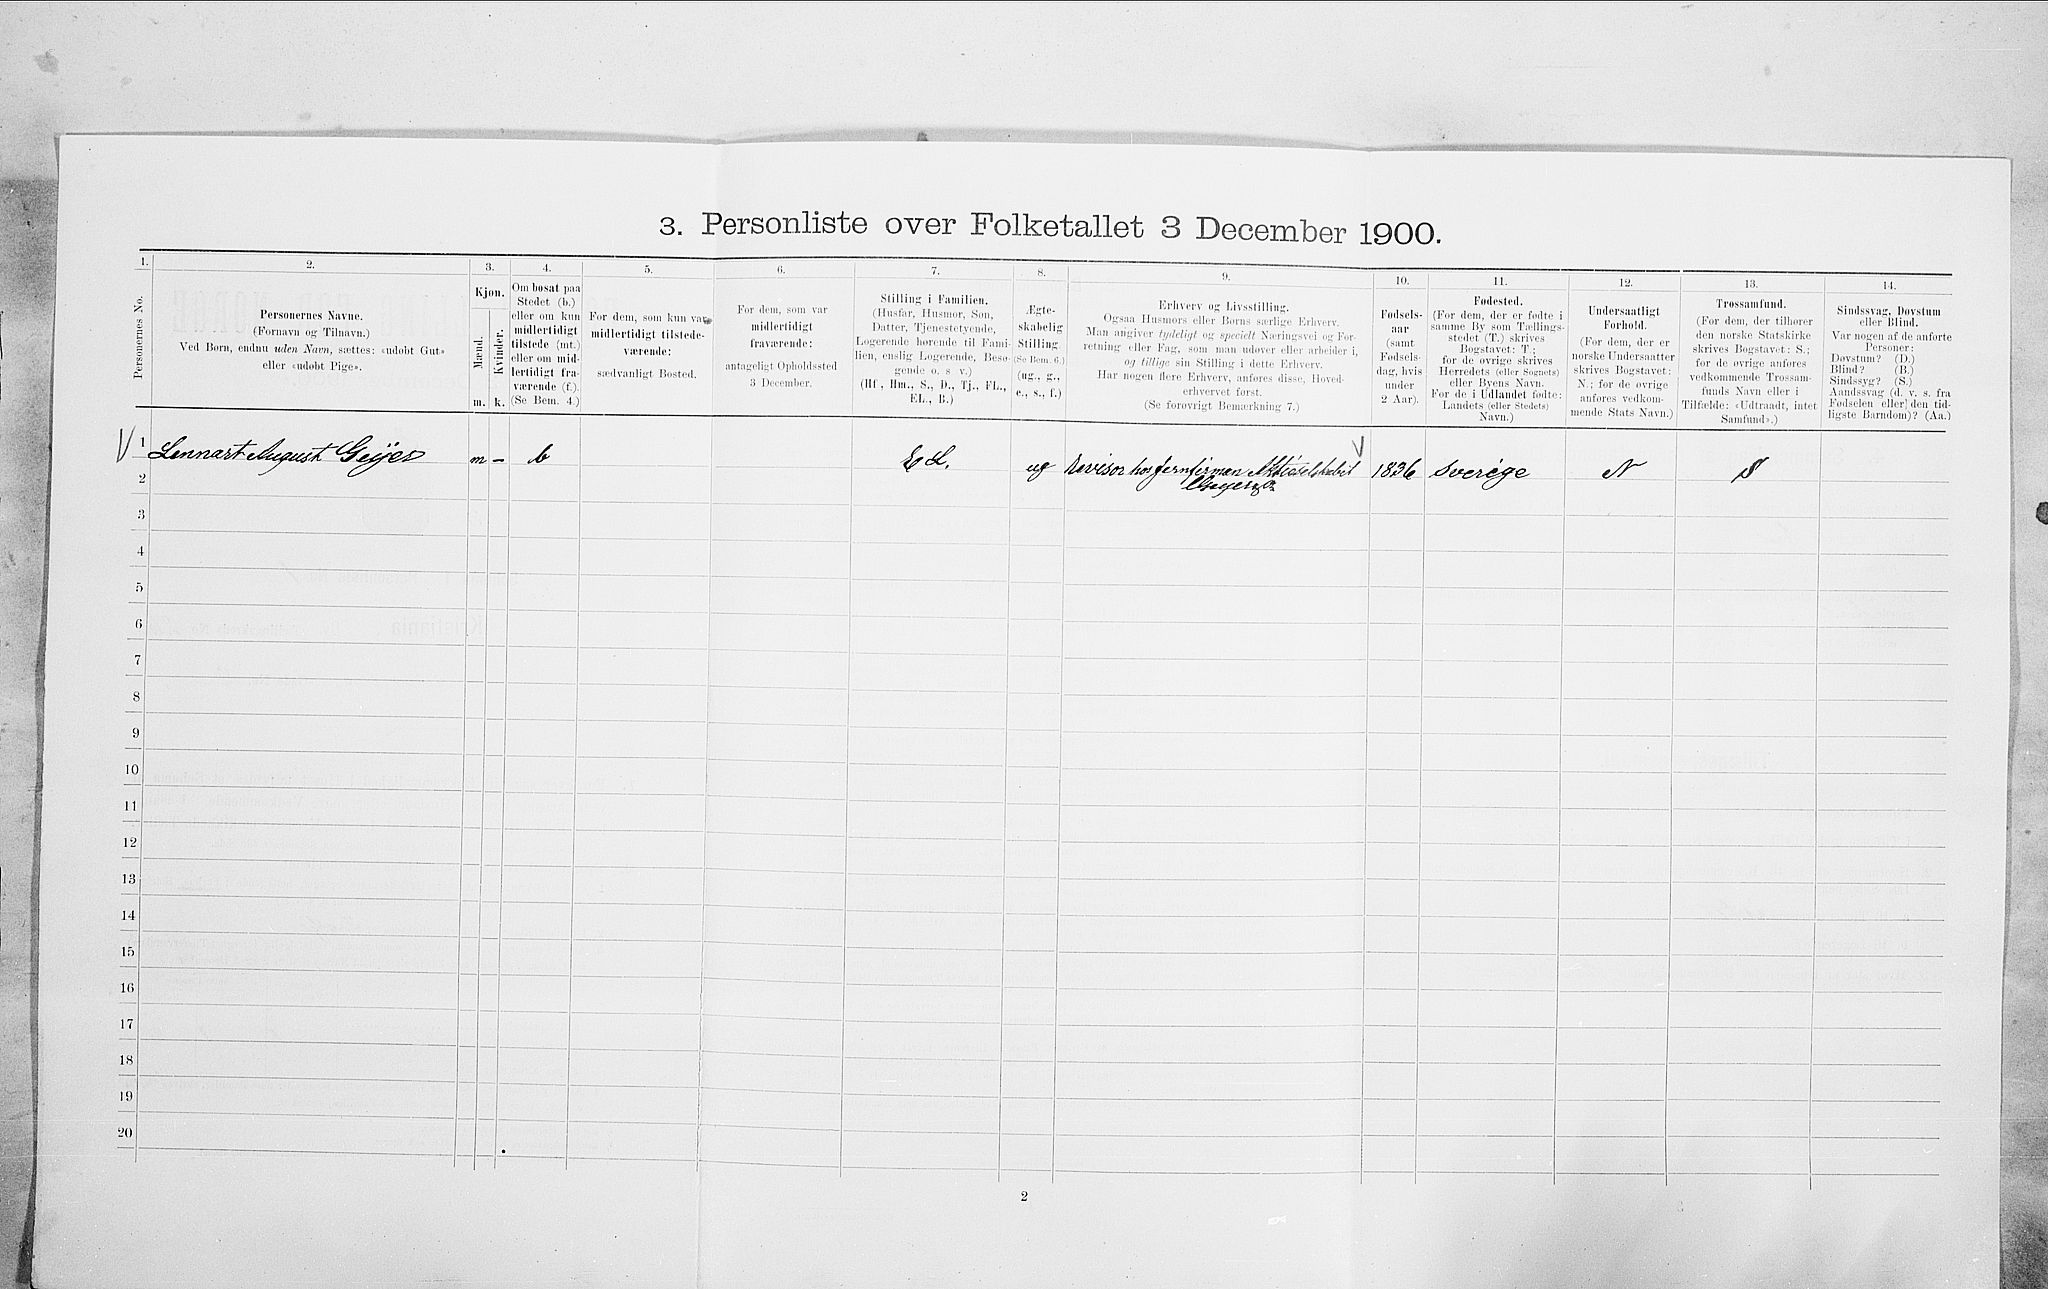 3. Personliste over Folketallet 3 December 1900.
1.
2.
3.
4.
5.
6.
7.
8.
9.
10.
11.
12.
13.
14.
Personernes No.
Personernes Navne.
(Fornavn og Tilnavn.)
Ved Børn, endnu uden Navn, sættes: «udøbt Gut»
eller «udøbt Pige».
Kjøn.
Mænd.
Kvinder.
m.
k.
Om bosat paa
Stedet (b.)
eller om kun
midlertidigt
tilstede (mt.)
eller om mid-
lertidigt fra-
værende (f.).
(Se Bem. 4.)
For dem, som kun var
midlertidigt tilstede-
værende:
sædvanligt Bosted.
For dem, som var
midlertidigt
fraværende:
antageligt Opholdssted
3 December.
Stilling i Familien.
(Husfar, Husmor, Søn,
Datter, Tjenestetyende,
Logerende hørende til Fami-
lien, enslig Logerende, Besø-
gende o. s v.)
(Hf, Hm., S., D., Tj., FL.,
EL., B.)
Ægte-
skabelig
Stilling.
(Se Bem. 6.)
(ug., g.,
e., s., f.)
Erhverv og Livsstilling.
Ogsaa Husmors eller Børns særlige Erhverv.
Man angiver tydeligt og specielt Næringsvei og For-
retning eller Fag, som man udøver eller arbeider i,
og tillige sin Stilling i dette Erhverv.
Har nogen flere Erhverv, anføres disse, Hoved-
erhvervet først.
(Se forøvrigt Bemærkning 7.)
Fødsels-
aar
(samt
Fødsels-
dag, hvis
under
2 Aar).
Fødested.
(For dem, der er fødte i
samme By som Tællings-
stedet (T.) skrives
Bogstavet: T.;
for de øvrige skrives
Herredets (eller Sognets)
eller Byens Navn.
For de i Udlandet fødte:
Landets (eller Stedets)
Navn.)
Undersaatligt
Forhold.
(For dem, der er
norske Undersaatter
skrives Bogstavet:
N.; for de øvrige
anføres vedkom-
mende Stats Navn.)
Trossamfund.
(For dem, der tilhører
den norske Statskirke
skrives Bogstavet: S.;
for de øvrige anføres
vedkommende Trossam-
funds Navn eller i
Tilfælde: «Udtraadt, intet
Samfund».)
Sindssvag, Døvstum
eller Blind.
Var nogen af de anførte
Personer:
Døvstum? (D.)
Blind? (B.)
Sindssyg? (S.)
Aandssvag (d. v. s. fra
Fødselen eller den tid-
ligste Barndom)? (Aa.)
1 Lennart August Geijer m - b EL. ug Revisor hos Jernfirman Aktieselskabet 1836 Sverige N S
2
3
4
5
6
7
8
9
10
11
12
13
14
15
16
17
18
19
20
2